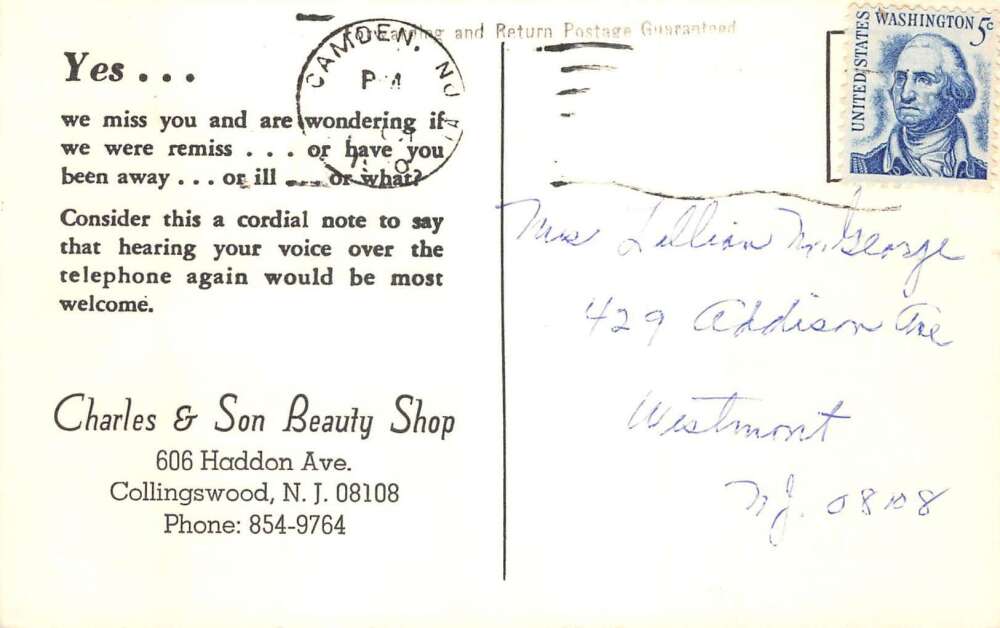 Forwarding and Return Postage Guaranteed
CAMDEN, NJ
PM
UNITED STATES
WASHINGTON 5c
Yes . . .
we miss you and are wondering if
we were remiss . . . or have you
been away . . . or ill . . . or what?
Consider this a cordial note to say
that hearing your voice over the
telephone again would be most
welcome.
Charles & Son Beauty Shop
606 Haddon Ave.
Collingswood, N. J. 08108
Phone: 854-9764
Mrs Lillian McGeorge
429 Addison Ave
Westmont
NJ. 08108